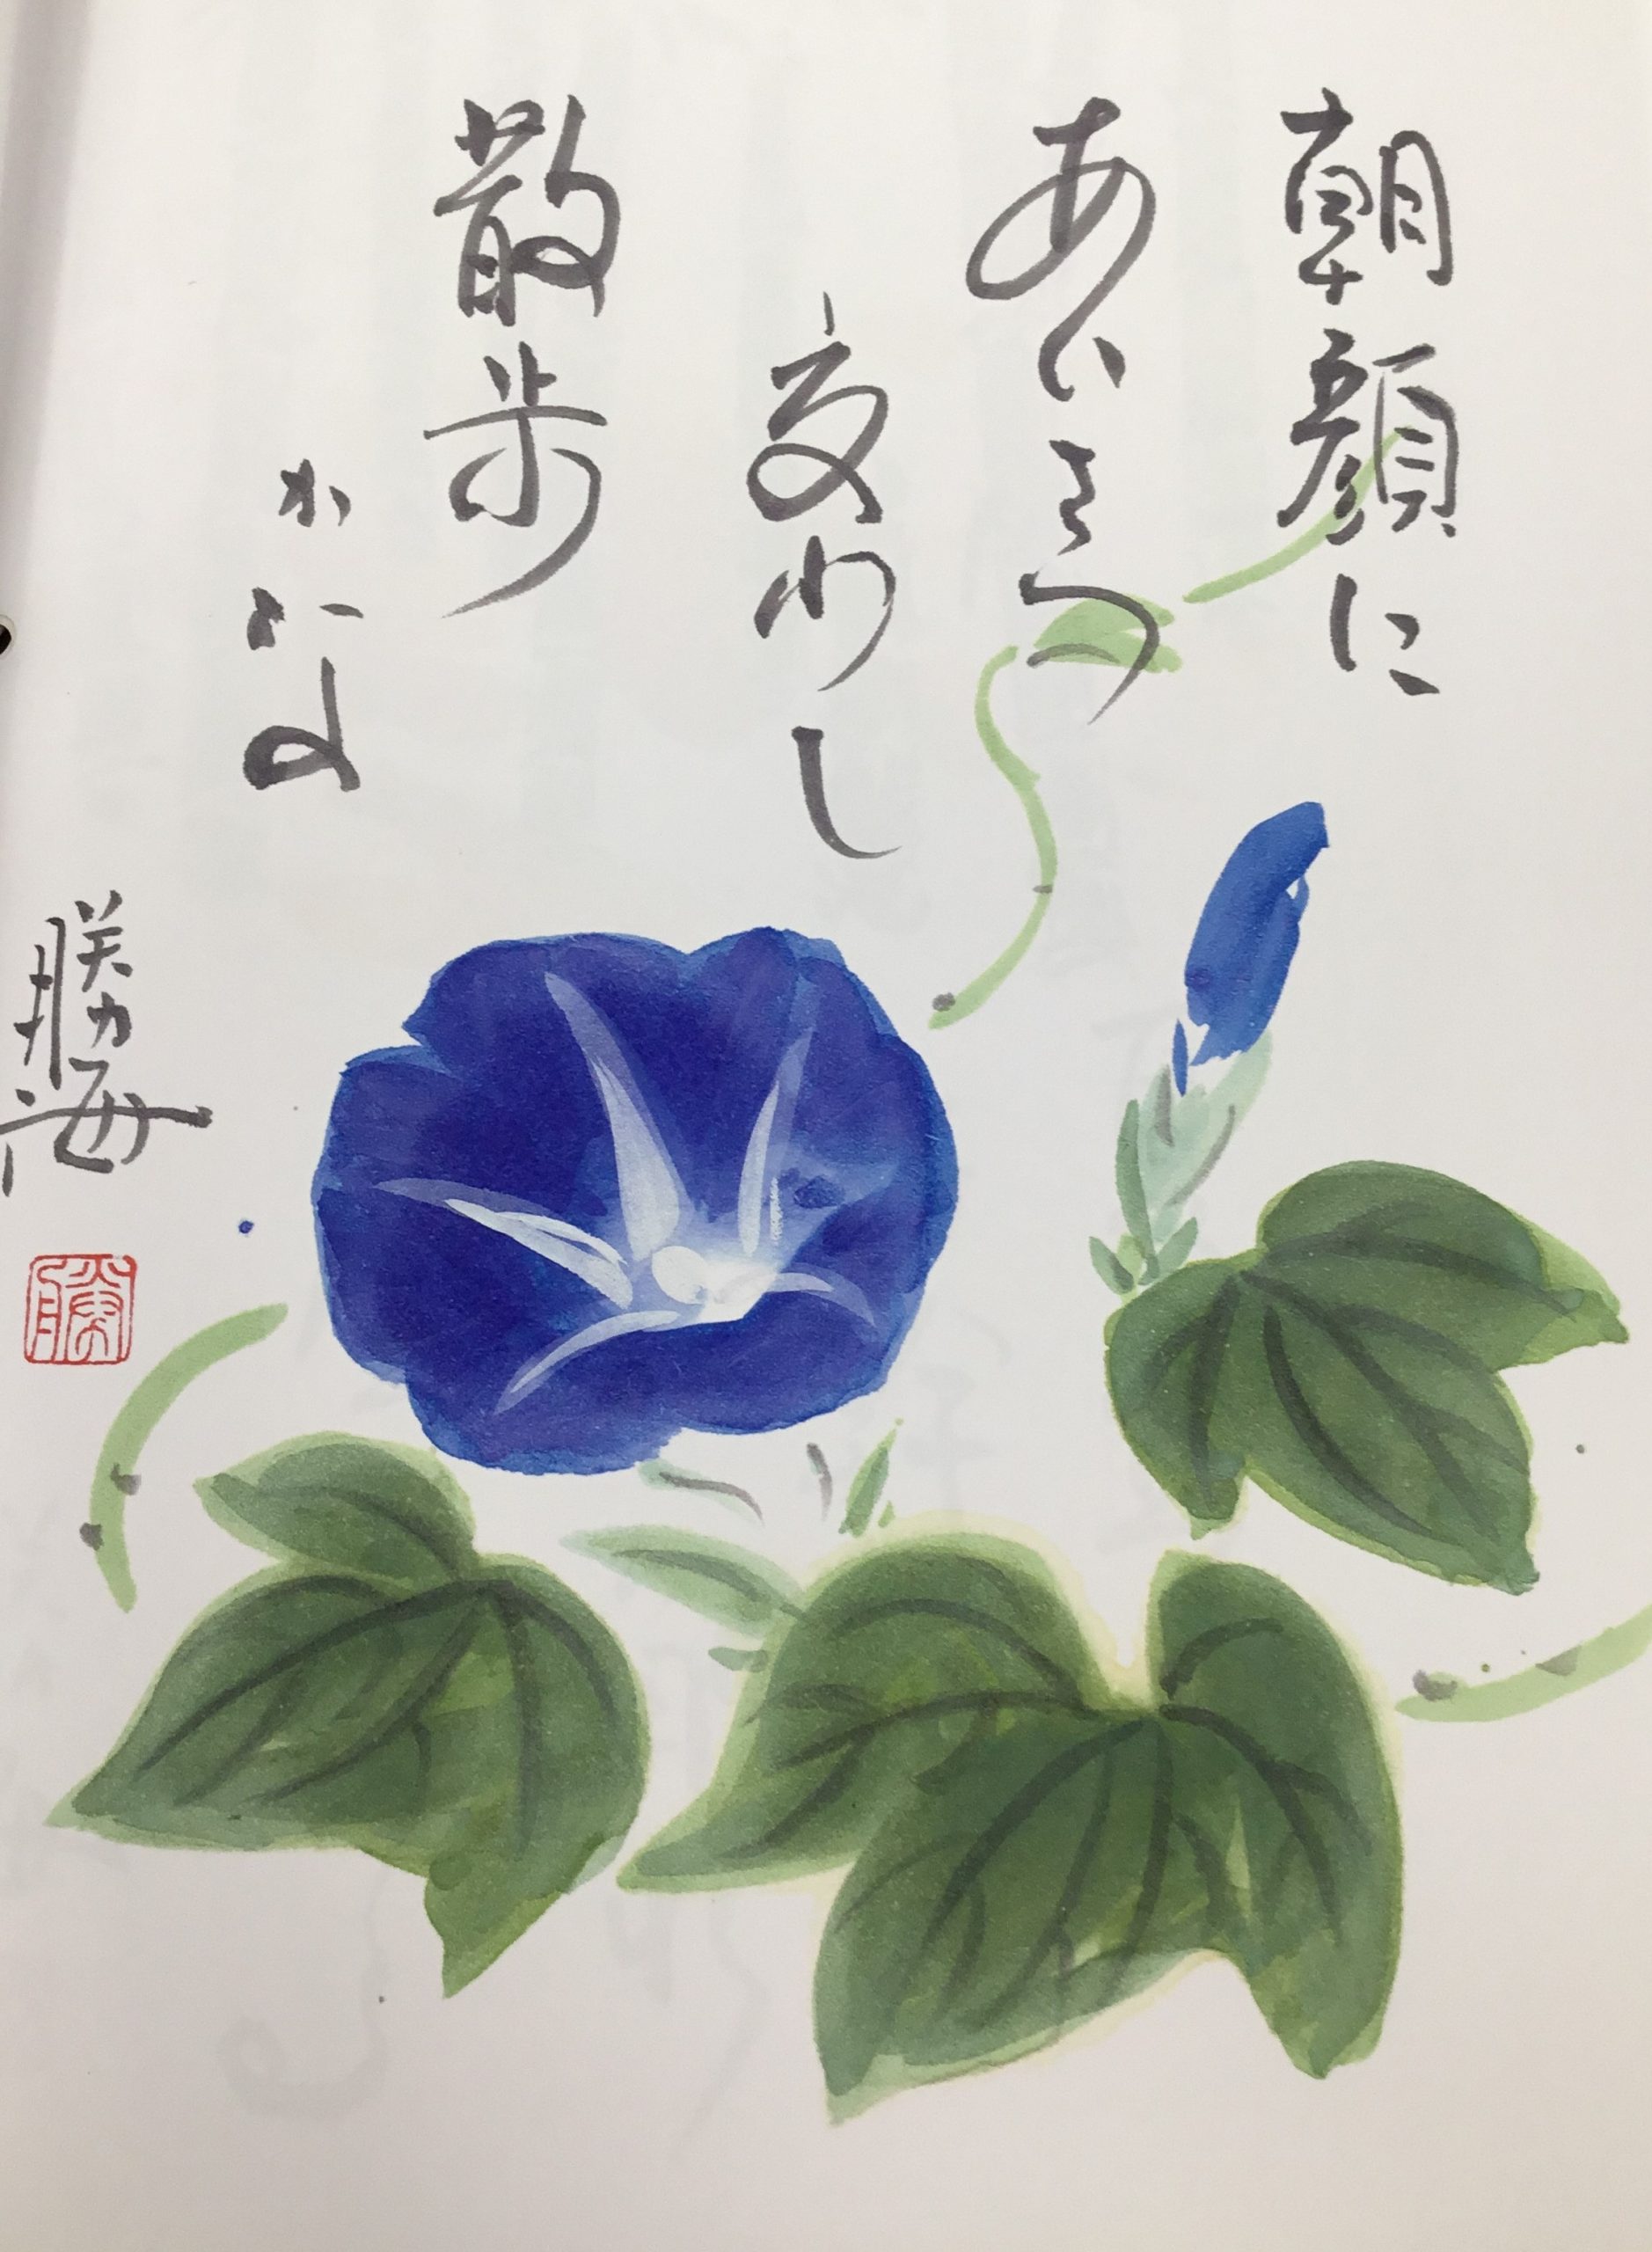 朝顔に
あいさつ
交わし
散歩
かな
勝海
勝